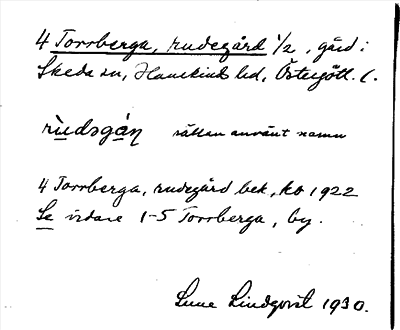 4 Torrberga, rudegård 1/2, gård i
Skeda sn, Hanekinds hd, Östergötl. l.
rùdəgàṇ sällan använt namn
4 Torrberga, rudegård bek, kb 1922
Se vidare 1-5 Torrberga, by.
Sune Lindqvist 1930.